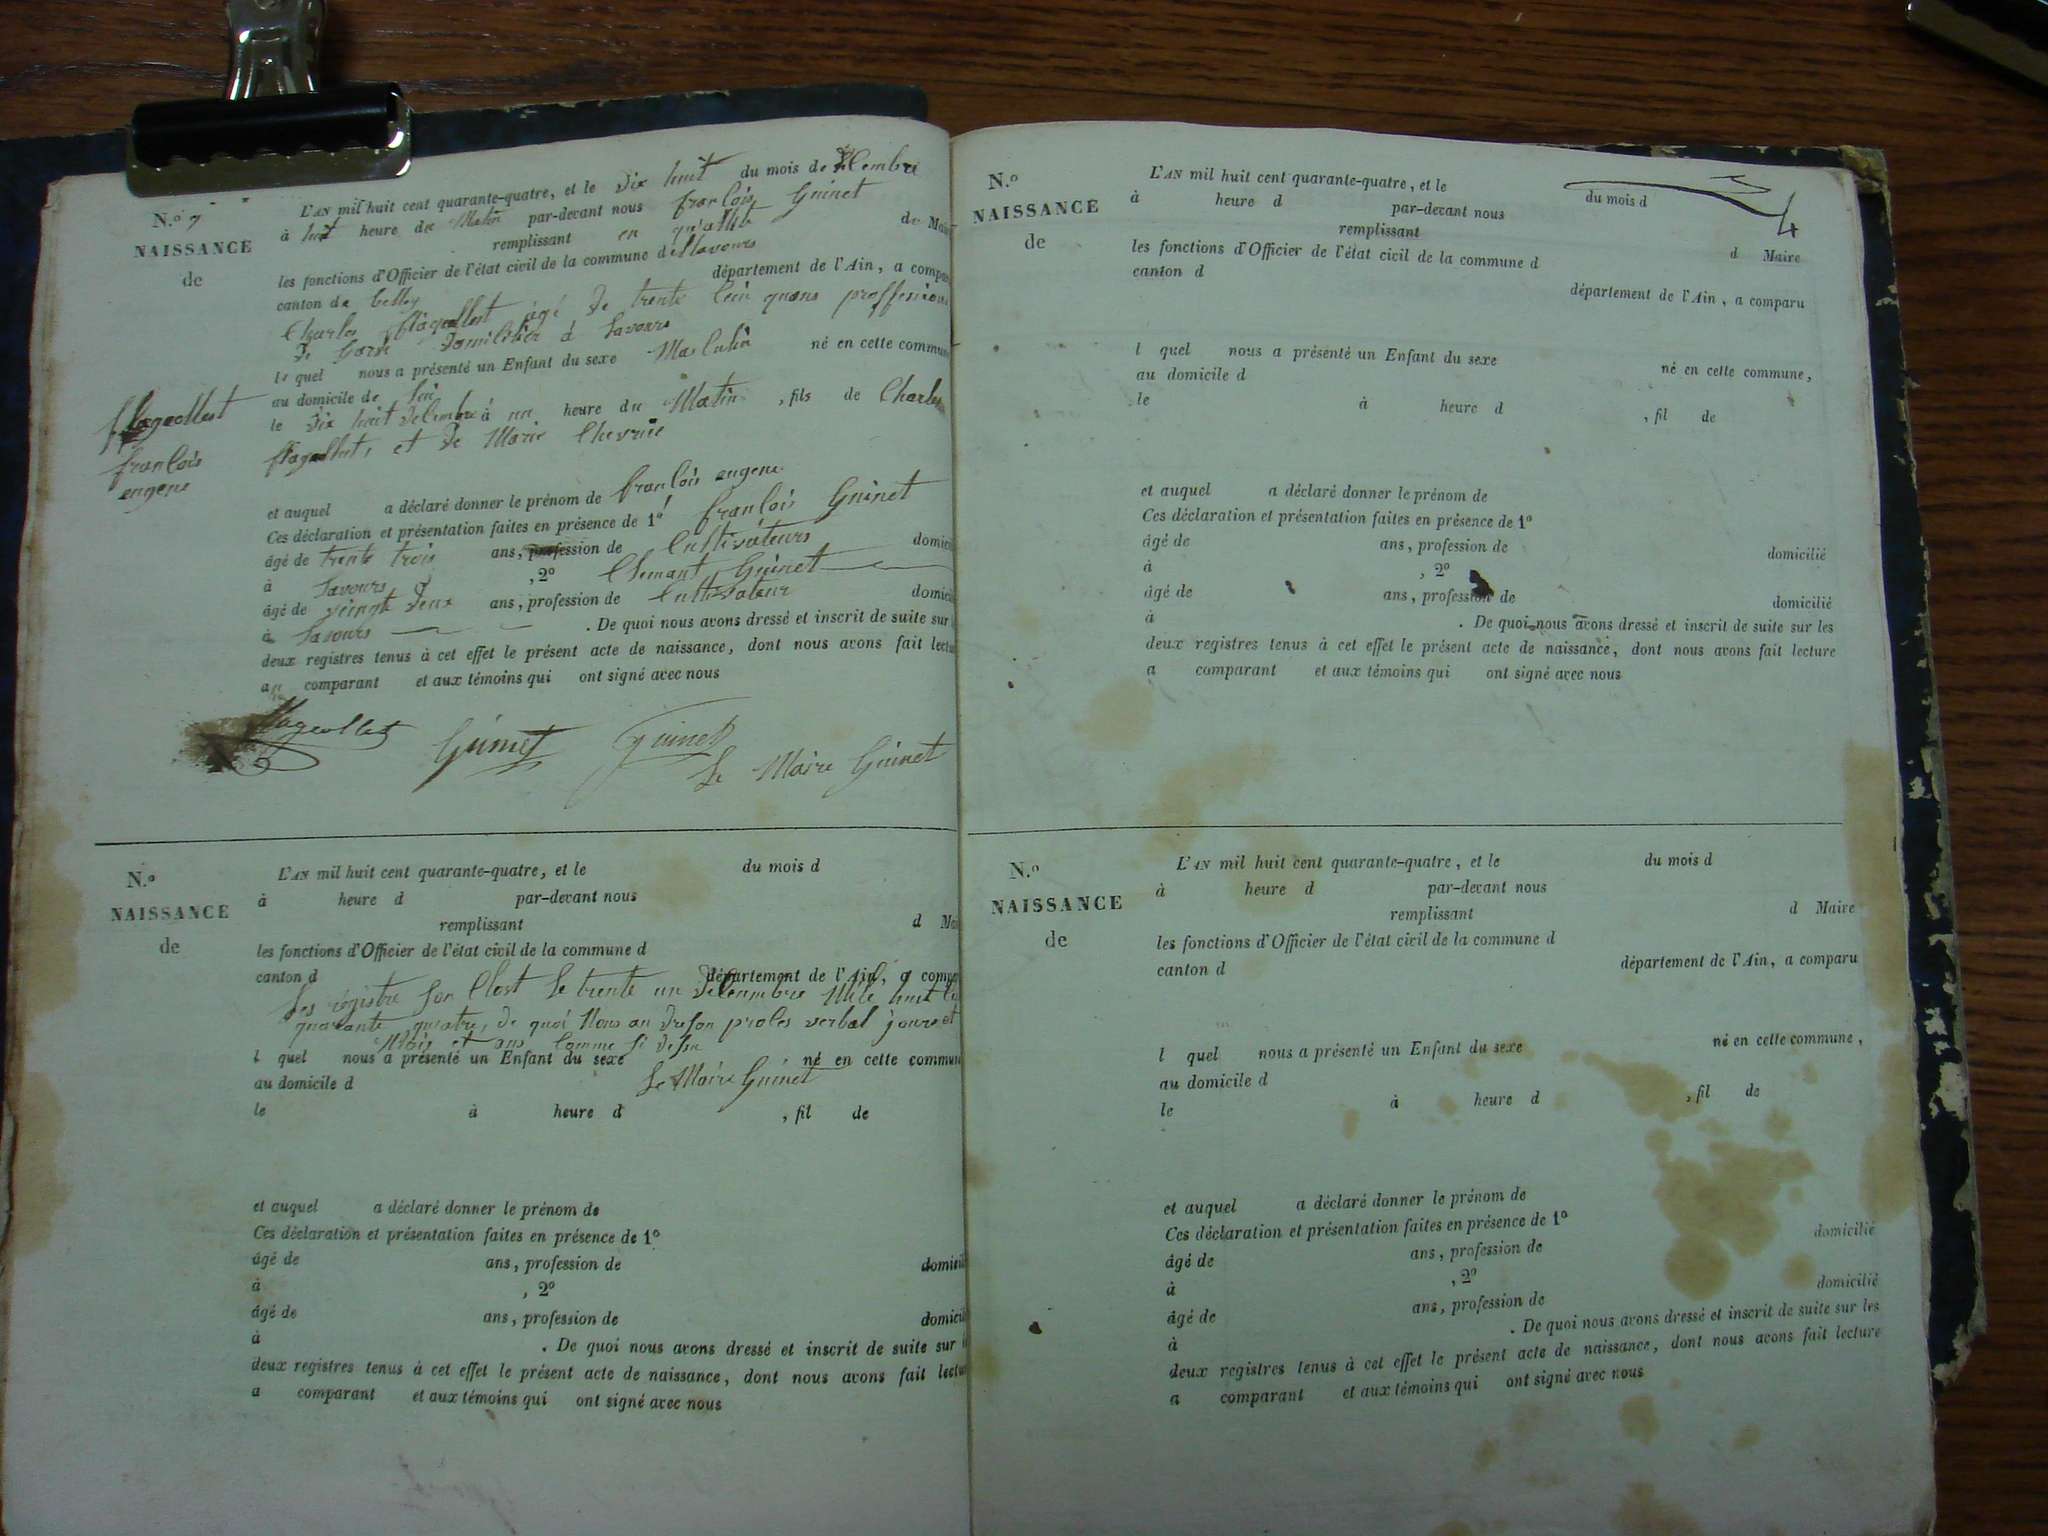 N.o 7
NAISSANCE
de
flageollest
franlois
eugene
L'AN mil huit cent quarante-quatre, et le dix huit du mois de
à huit heure du Matin par-devant nous franlois Guinet
remplissant en qualité de Mair
les fonctions d'Officier de l'état civil de la commune de Lavours
canton de belley département de l'Ain, a compar
Charles flageollest agé de trente
de domicilier à Lavours
le quel nous a présenté un Enfant du sexe Masculin né en cette commun
au domicile de
le dix huit delembre à un heure du Matin, fils de Charles
flageollest, et de Marie
et auquel a déclaré donner le prénom de franlois eugene
Ces déclaration et présentation faites en présence de 1o franlois Guinet
âgé de trente trois ans, profession de Cultivateurs domici
à Lavours, 2o Clemant Guinet
âgé de veingt deux ans, profession de Cultivateur domici
à Lavours. De quoi nous avons dressé et inscrit de suite sur
deux registres tenus à cet effet le présent acte de naissance, dont nous avons fait lectu
au comparant et aux témoins qui ont signé avec nous
flageollet Guinet Guinet
Le Maire Guinet
N.o
NAISSANCE
de
L'AN mil huit cent quarante-quatre, et le du mois d
à heure d par-devant nous
remplissant d Mai
les fonctions d'Officier de l'état civil de la commune d
canton d département de l'Ain, a compa
Les registre son Clost Le trente un Mile huit
quarante quatre, de quoi Nous an proles verbal jours et
Mois et ans Comme
l quel nous a présenté un Enfant du sexe né en cette commun
au domicile d Le Maire Guinet
le à heure d , fil de
et auquel a déclaré donner le prénom de
Ces déclaration et présentation faites en présence de 1o
âgé de ans, profession de domicili
à , 2o
âgé de ans, profession de domicili
à . De quoi nous avons dressé et inscrit de suite sur
deux registres tenus à cet effet le présent acte de naissance, dont nous avons fait lectu
a comparant et aux témoins qui ont signé avec nous
4
N.o
NAISSANCE
de
L'AN mil huit cent quarante-quatre, et le du mois d
à heure d par-devant nous
remplissant d Maire
les fonctions d'Officier de l'état civil de la commune d
canton d département de l'Ain, a comparu
l quel nous a présenté un Enfant du sexe né en cette commune,
au domicile d
le à heure d , fil de
et auquel a déclaré donner le prénom de
Ces déclaration et présentation faites en présence de 1o
âgé de ans, profession de domicilié
à , 2o
âgé de ans, profession de domicilié
à . De quoi nous avons dressé et inscrit de suite sur les
deux registres tenus à cet effet le présent acte de naissance, dont nous avons fait lecture
a comparant et aux témoins qui ont signé avec nous
N.o
NAISSANCE
de
L'AN mil huit cent quarante-quatre, et le du mois d
à heure d par-devant nous
remplissant d Maire
les fonctions d'Officier de l'état civil de la commune d
canton d département de l'Ain, a comparu
l quel nous a présenté un Enfant du sexe né en cette commune,
au domicile d
le à heure d , fil de
et auquel a déclaré donner le prénom de
Ces déclaration et présentation faites en présence de 1o
âgé de ans, profession de domicilié
à , 2o
âgé de ans, profession de domicilié
à . De quoi nous avons dressé et inscrit de suite sur les
deux registres tenus à cet effet le présent acte de naissance, dont nous avons fait lecture
a comparant et aux témoins qui ont signé avec nous